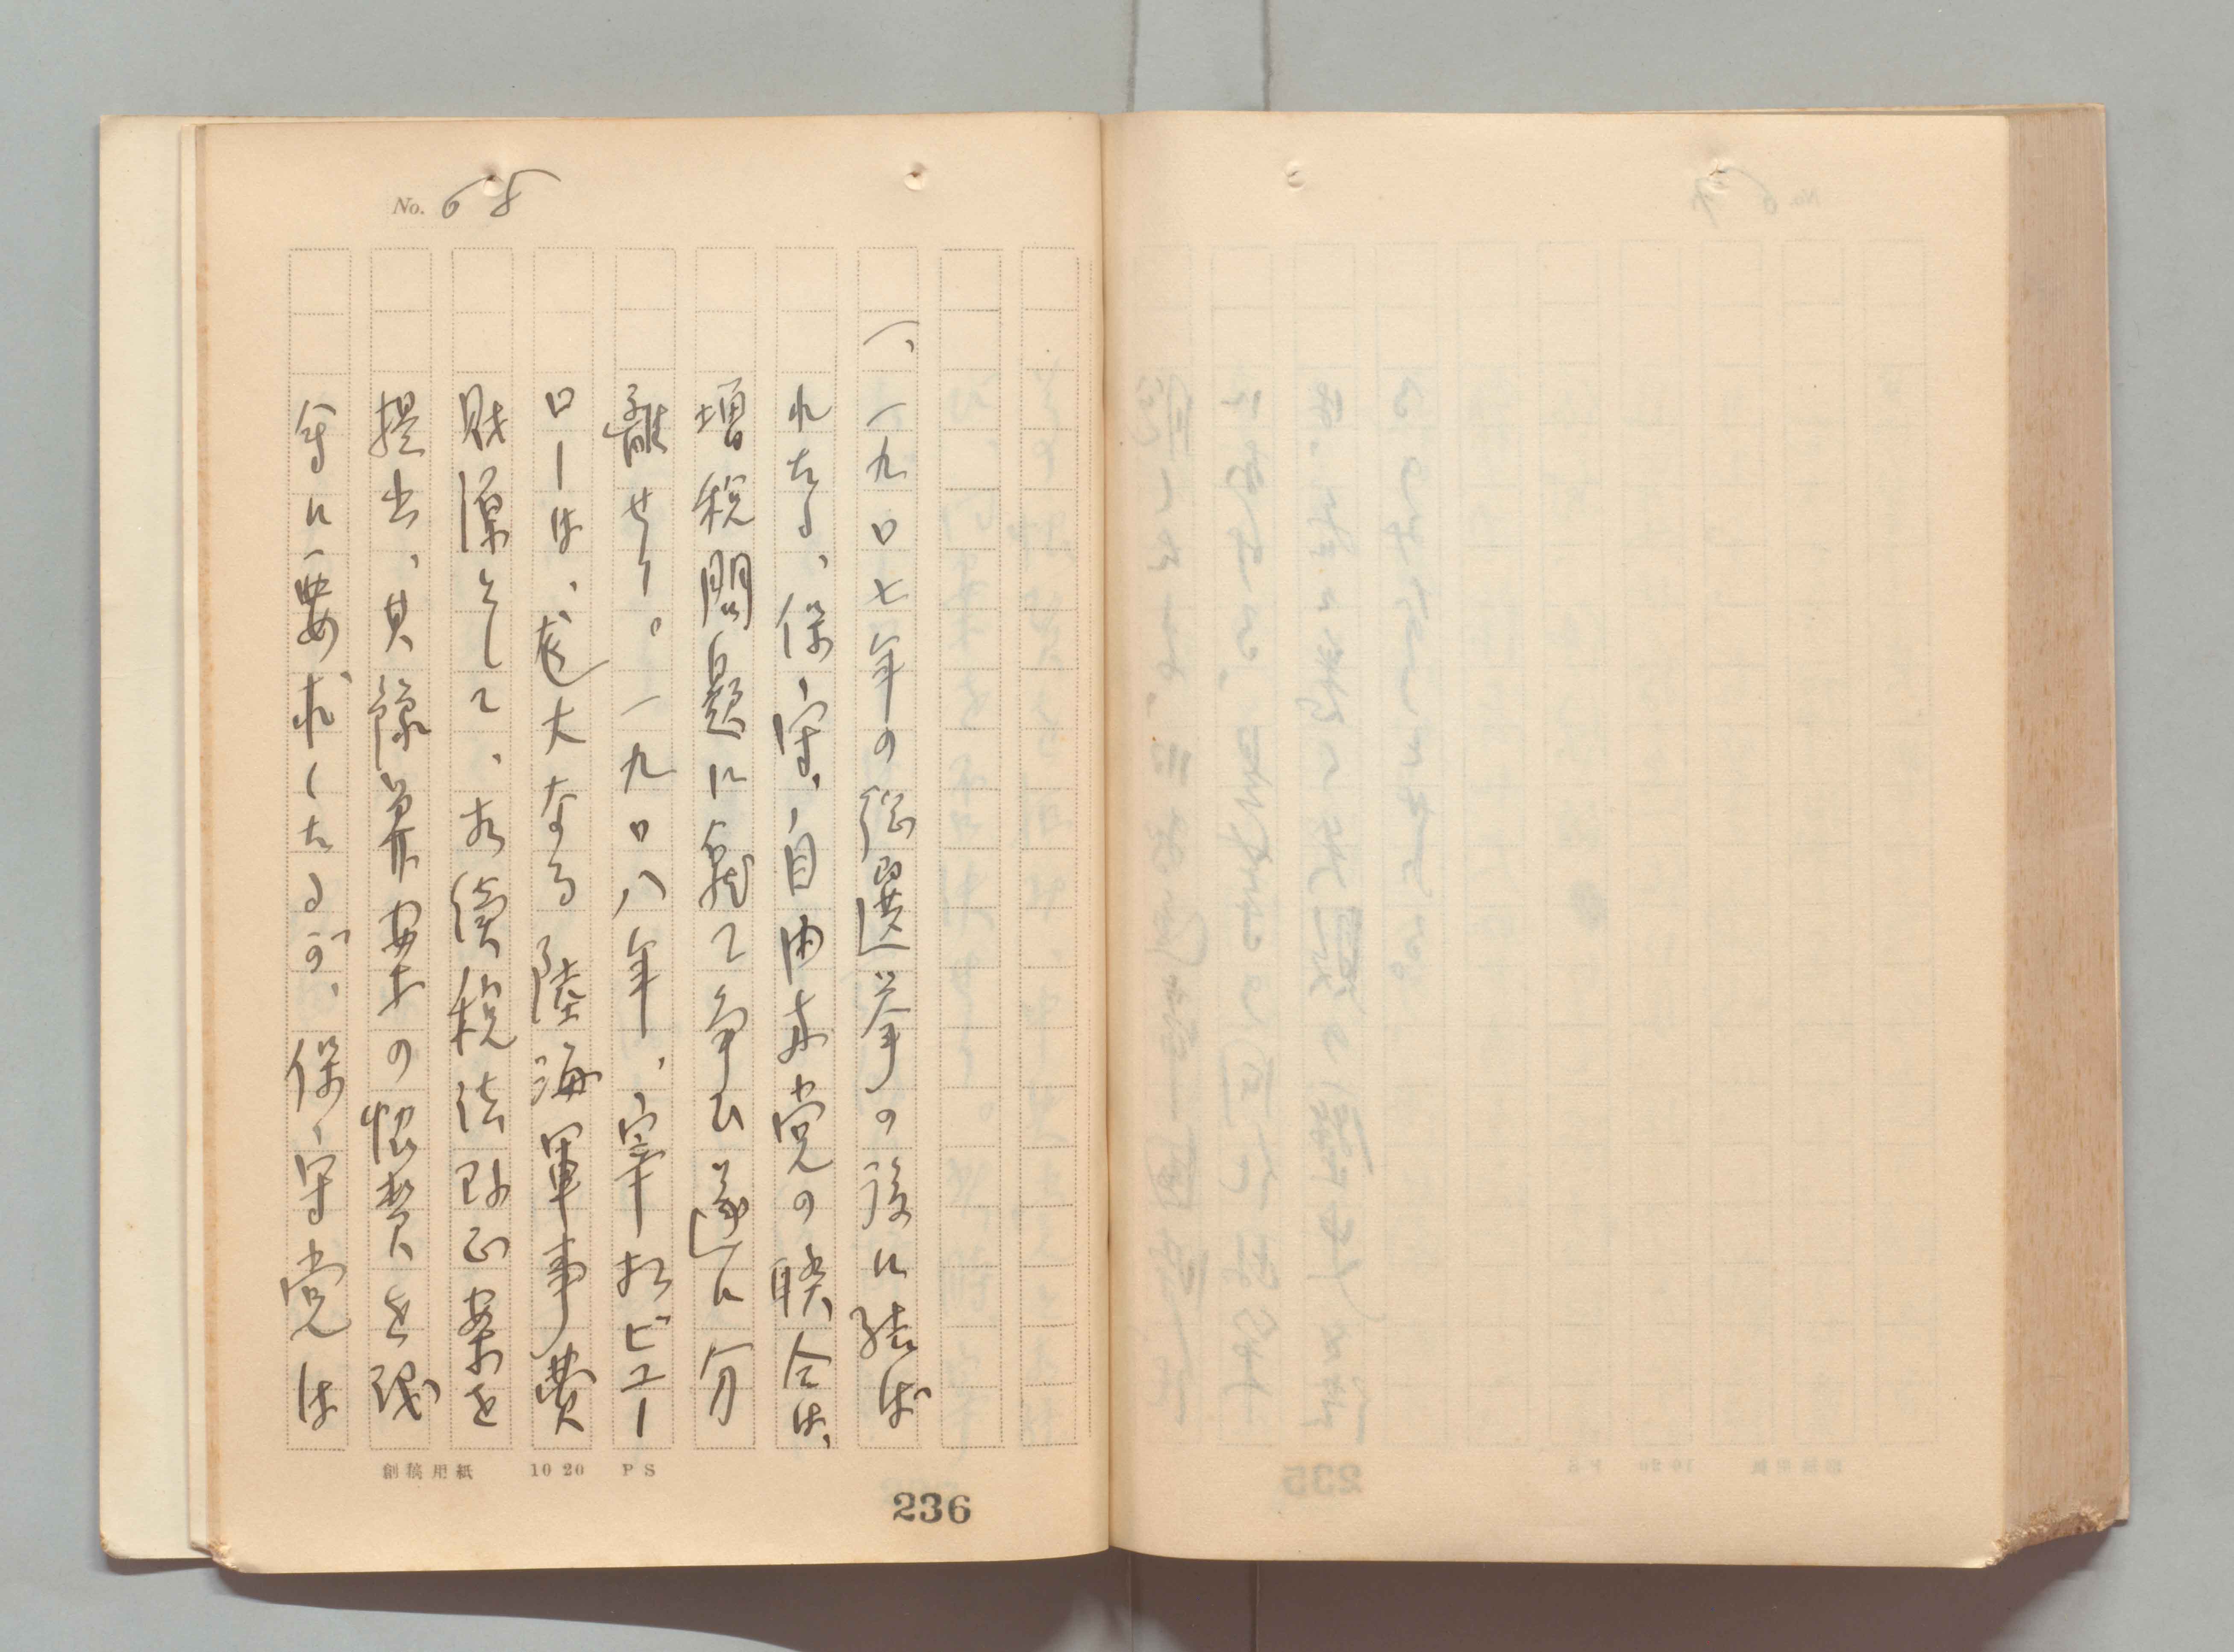 No. 68
一、一九〇七年の総選挙の後に結ば
れたる、保守、自由両党の聯合は、
増税問題に就て争ひ遂に分
離せり。一九〇八年、宰相ビュー
ローは、尨大なる陸海軍事費
財源として、相續税法改正案を
提出、其豫算案の協賛を議
会に要求したるが、保守党は
創稿用紙 10 20 PS
236